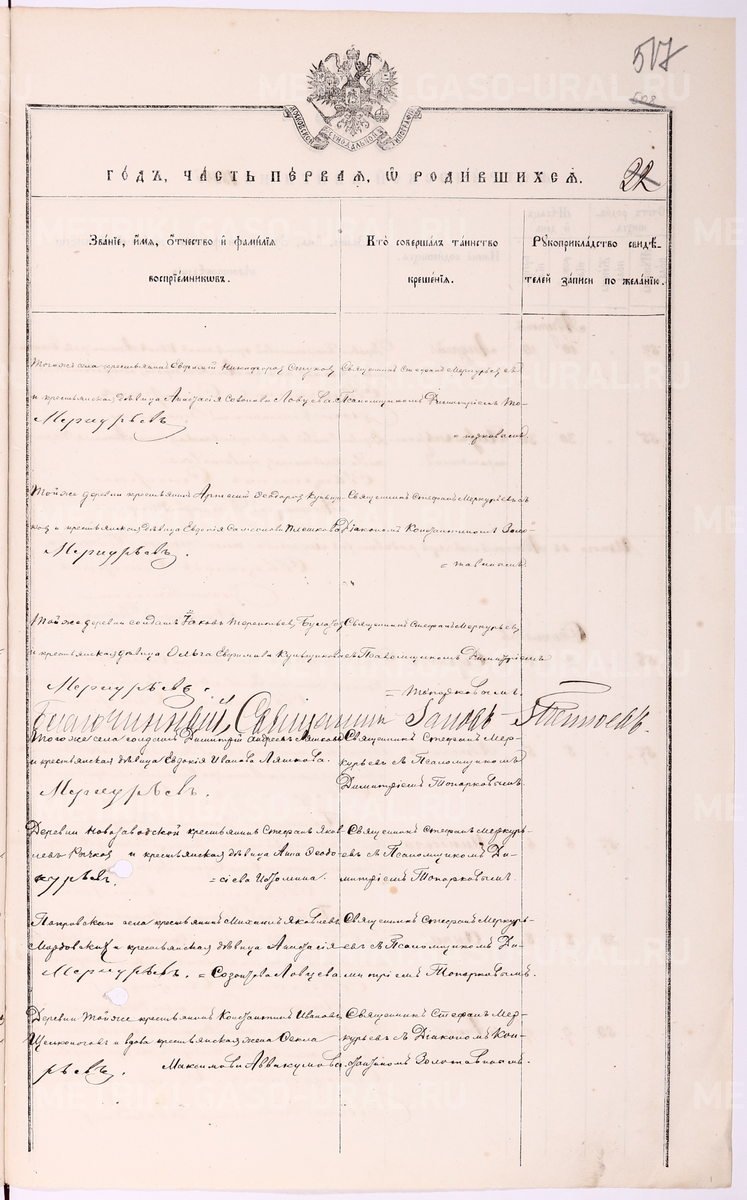 517
502
МОСКОВСКОЙ СѴНОДАЛЬНОЙ ТИПОГРАФІИ
ГОДЪ, ЧАСТЬ ПЕРВАЯ, Ѿ РОДИВШИХСЯ.
22
Званіе, имя, отчество и фамилія воспріемниковъ.
Кто совершалъ таинство крещенія.
Рукоприкладство свидѣтелей записи по желанію.
Тогоже села крестьянинъ Евфимій Никифоровъ
и крестьянская дѣвица Анастасія Ловцева
Меркурьевъ
Священникъ Стефанъ Меркурьевъ съ
Псаломщикомъ Димитріемъ То-
=порковымъ.
Тойже деревни крестьянинъ Артемій Ѳеодоровъ
и крестьянская дѣвица Евдокія Самсонова Плешкова
Меркурьевъ.
Священникъ Стефанъ Меркурьевъ съ
Діакономъ Константиномъ Золо-
=тавинымъ.
Тойже деревни солдатъ Іаковъ Терентьевъ
и крестьянская дѣвица Ольга
Меркурьевъ.
Священникъ Стефанъ Меркурьевъ
съ Псаломщикомъ Димитріемъ
=Топорковымъ.
Благочинный Священникъ Іаковъ
Тогоже села солдатъ Димитрій Андреевъ
и крестьянская дѣвица Евдокія Иванова Ляшкова.
Меркурьевъ.
Священникъ Стефанъ Мер-
курьевъ съ Псаломщикомъ
Димитріемъ Топорковымъ.
Деревни Новозаводской крестьянинъ Стефанъ Яков-
левъ Рычковъ и крестьянская дѣвица Анна Ѳеодо-
=сіева Изомина.
курьевъ.
Священникъ Стефанъ Меркурь-
евъ съ Псаломщикомъ Ди-
митріемъ Топорковымъ.
Покровскаго села крестьянинъ Михаилъ Яковлевъ
и крестьянская дѣвица Анастасія
Меркурьевъ. =Созонтова Ловцева
Священникъ Стефанъ Меркурь-
евъ съ Псаломщикомъ Ди-
митріемъ Топорковымъ.
Деревни Тойже крестьянинъ Константинъ Ивановъ
Щелконоговъ и вдова крестьянская жена Ѳекла
Максимова Аввакумова
рьевъ.
Священникъ Стефанъ Мер-
курьевъ съ Діакономъ Кон-
стантиномъ Золотавинымъ.
METRIKI.GASO-URAL.RU